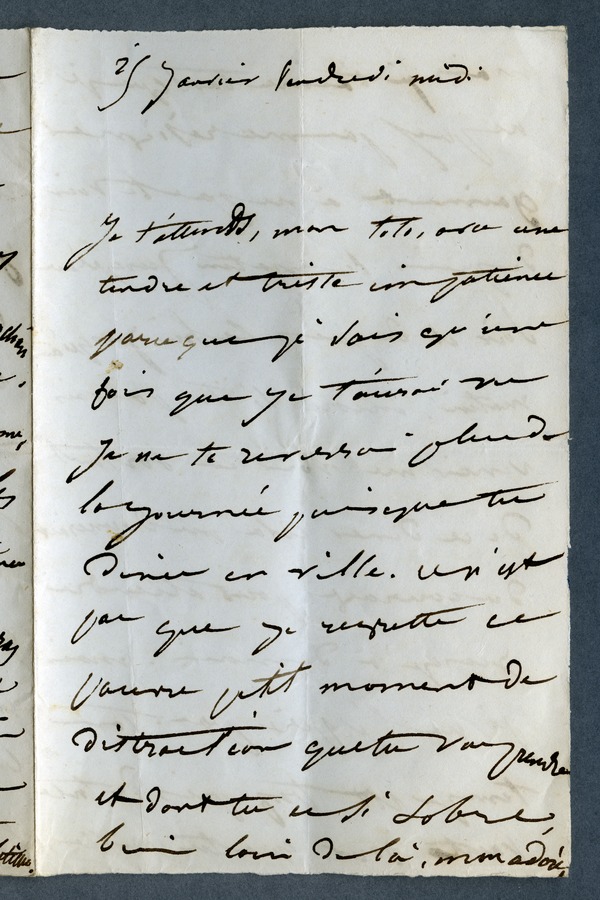 25 Janvier Vendredi midi
Je t'attends, mon toto, avec une
tendre et triste impatience
parceque je sais qu'une
fois que je t'aurai vu
Je ne te reverrai plus de
la journée puisque tu
dines en ville. Ce n'est
pas que je regrette ce
pauvre petit moment de
distraction que tu vas prendre
et dont tu es si sobre,
bien loin de là, mon adoré,